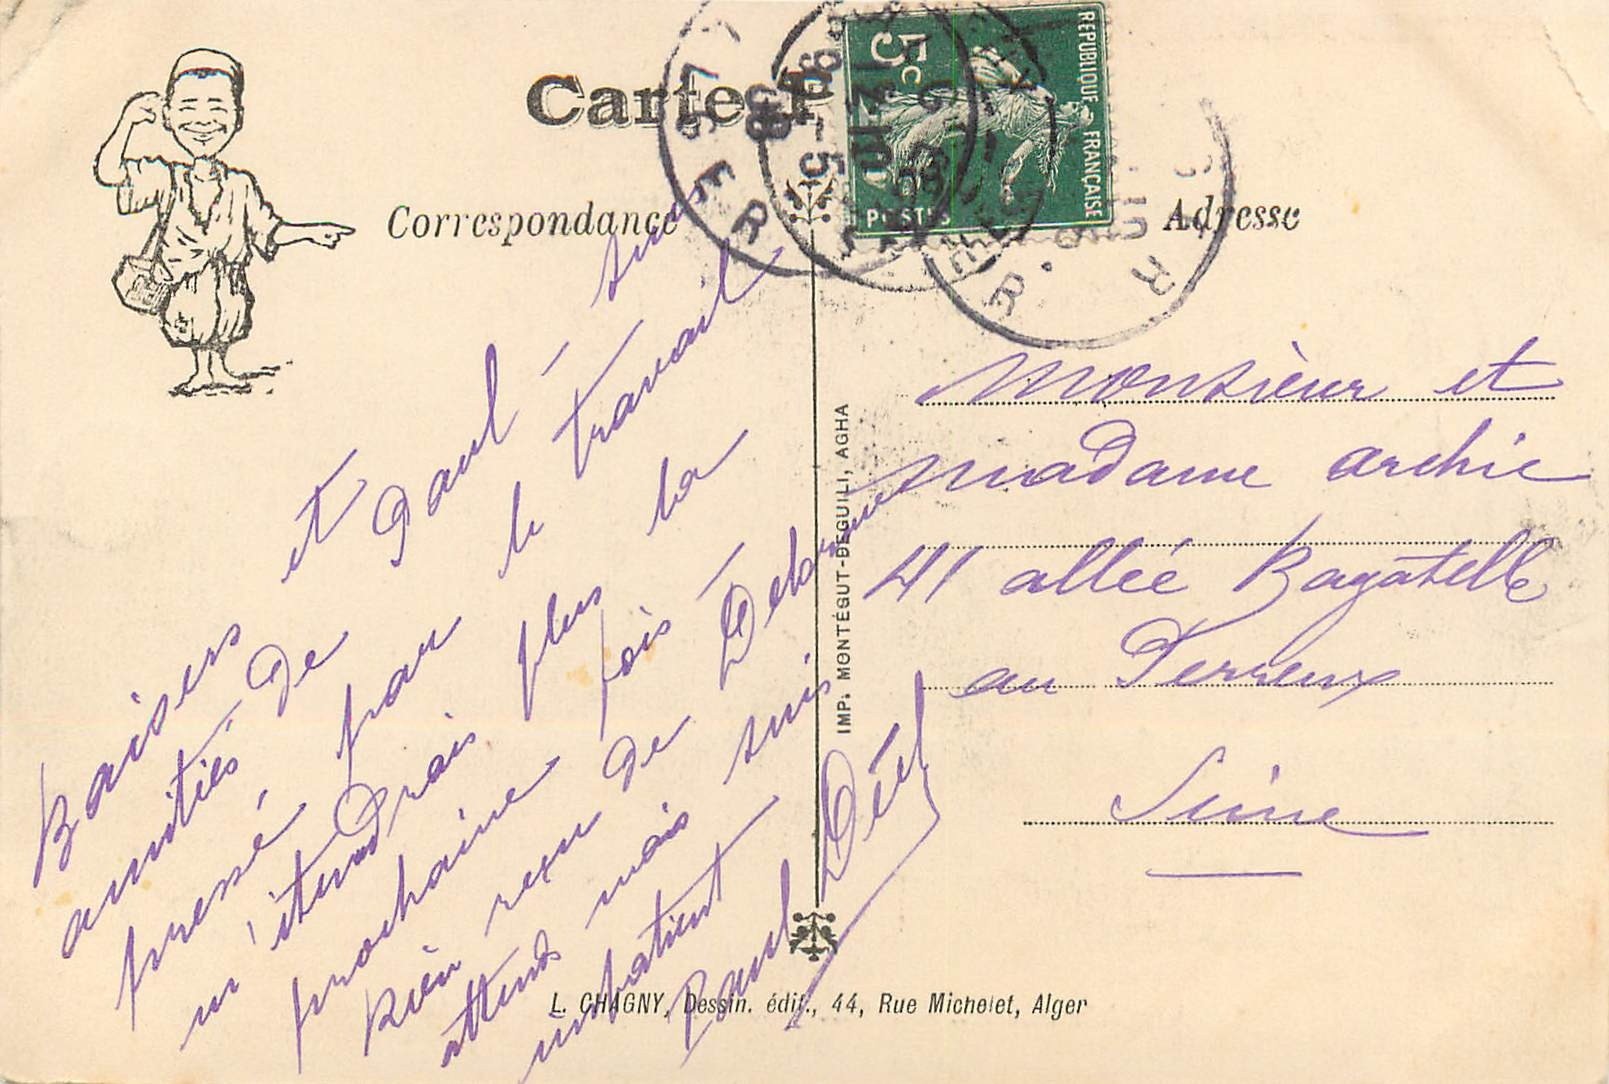 Carte
Correspondance
Adresse
5c
REPUBLIQUE FRANÇAISE
POSTES
ALGER
Baisers et
amitiés de Paul suis
pressé par le travail
m'étendrais plus la
prochaine fois
Rien reçu de Delorme
attends mais suis
impatient
Paul
Monsieur et
madame archie
41 allée Bagatelle
au Perreux
Seine
IMP. MONTÉGUT-DEGUILI, AGHA
L. CHAGNY, Dessin. édit., 44, Rue Michelet, Alger